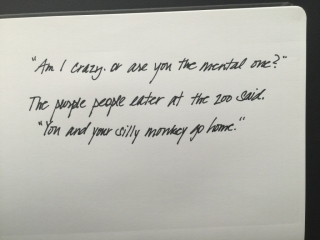 "Am I crazy. or are you the mental one?"
The purple people eater at the zoo said.
"You and your silly monkey go home."